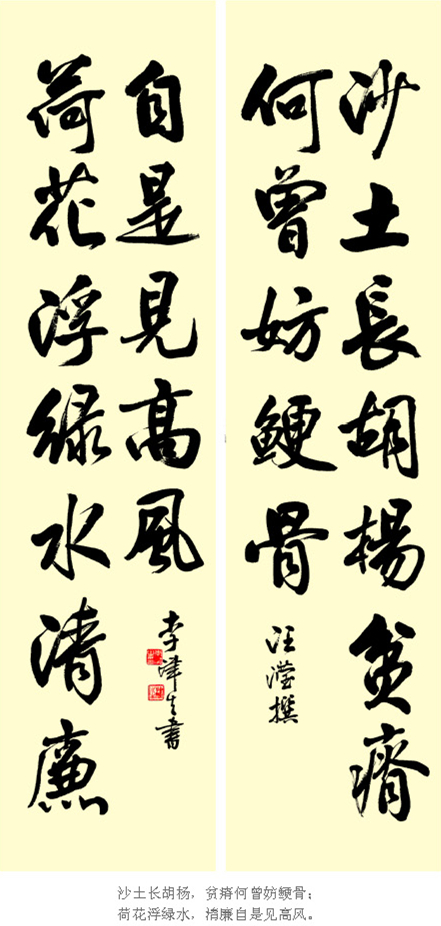 沙土長胡楊貧瘠
何曾妨鲠骨
汪滢撰
荷花浮绿水清廉
自是見高風
李津生書
沙土长胡杨，贫瘠何曾妨鲠骨；
荷花浮绿水，清廉自是见高风。